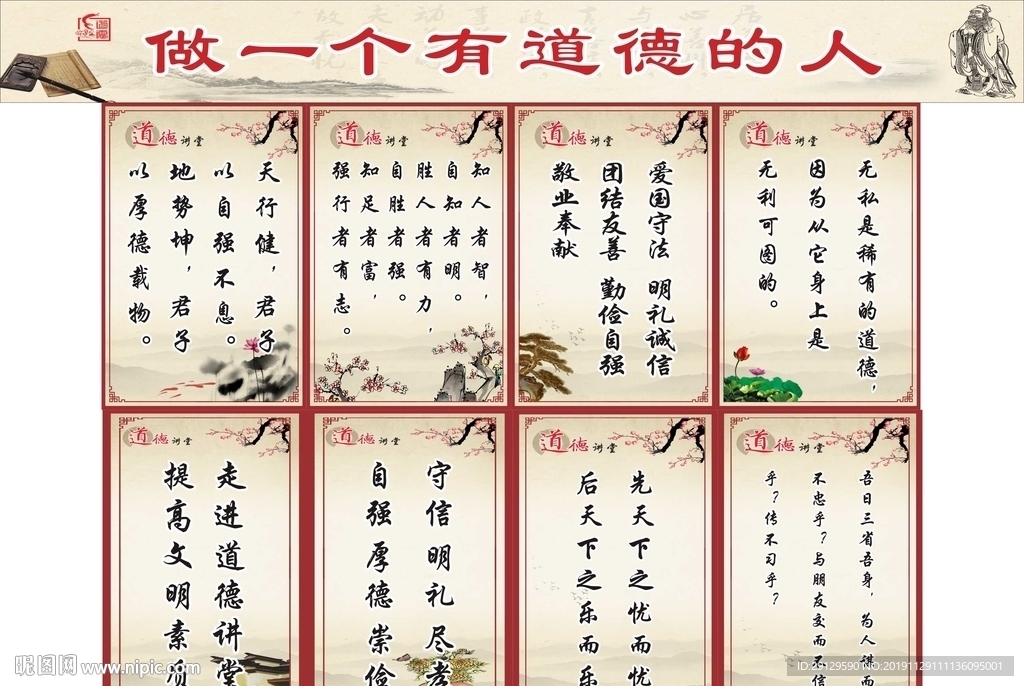 做一个有道德的人
道德讲堂
天行健，君子
以自强不息。
地势坤，君子
以厚德载物。
道德讲堂
知人者智，
自知者明。
胜人者有力，
自胜者强。
知足者富，
强行者有志。
道德讲堂
爱国守法 明礼诚信
团结友善 勤俭自强
敬业奉献
道德讲堂
无私是稀有的道德，
因为从它身上是
无利可图的。
道德讲堂
走进道德讲堂
提高文明素质
道德讲堂
守信明礼尽孝
自强厚德崇俭
道德讲堂
先天下之忧而忧
后天下之乐而乐
道德讲堂
吾日三省吾身，为人谋而
不忠乎？与朋友交而不信
乎？传不习乎？
昵图网 www.nipic.com
ID:29129590 NO:20191129111136095001